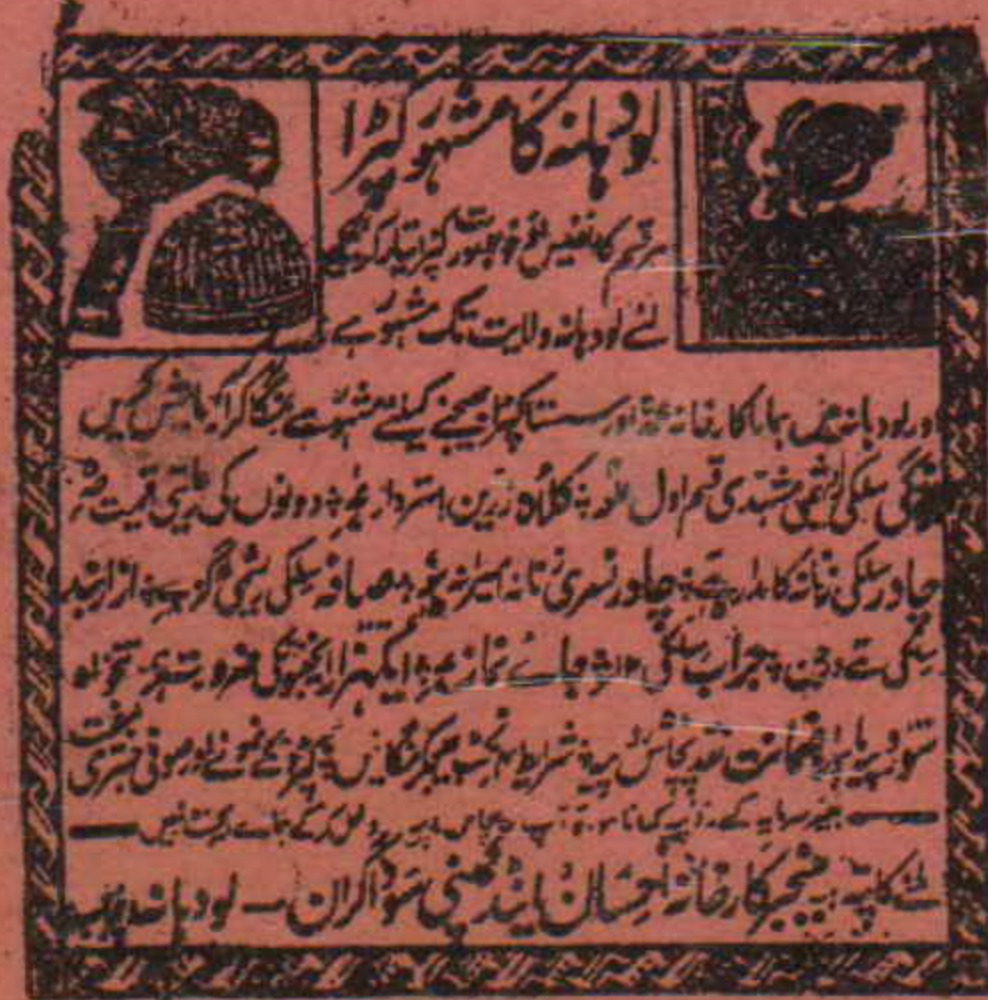 لودہانہ کا مشہور کپڑا
ہر قسم کا نفیس خوبصورت کپڑا تیار کرنیکے
لئے لودہانہ ولایت تک مشہور ہے
اور لودہانہ میں ہمارا کارخانہ عمدہ اور سستا کپڑا بھیجنے کیلئے مشہور ہے منگا کر آزمائش کریں
لنگی سلکی ریشمی مشہدی قسم اول کلاہ زرین استردار دونوں کی رعایتی قیمت
چادر سلکی زنانہ کامدار چادر نسری زنانہ صافہ سلکی ریشمی گز ازاربند
سلکی درجن جراب سلکی جائے نماز ایکہزار ایجنٹونکی ضرورت ہے تنخواہ
سو روپیہ ماہوار ضمانت نقد پچاس روپیہ شرائط بھیجکر منگائیں کپڑونکے نمونے اور صوفی جنتری مفت
بغیر سرمایہ کے روپیہ کمانا ہو تو آپ پچاس روپیہ
ملنے کا پتہ منیجر کارخانہ احسان اینڈ کمپنی سوداگران - لودہانہ پنجاب